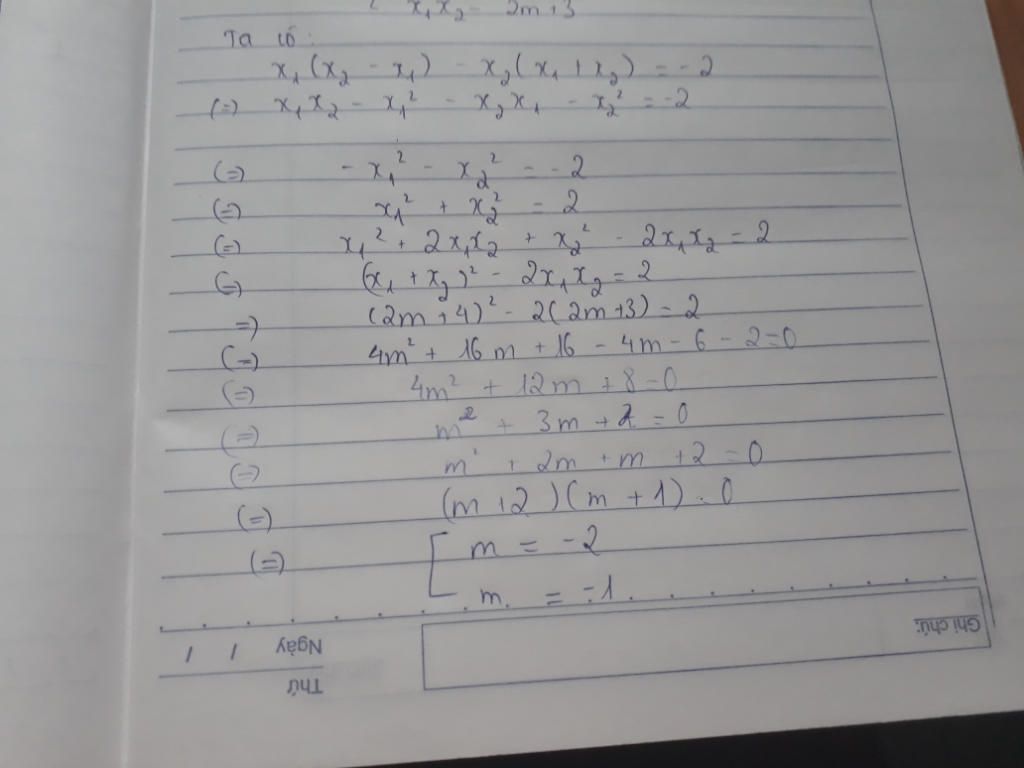 x₁x₂ = 2m+3
Ta có:
x₁(x₂ - x₁) - x₂(x₁ + x₂) = -2
(=) x₁x₂ - x₁² - x₂x₁ - x₂² = -2
(=) -x₁² - x₂² = -2
(=) x₁² + x₂² = 2
(=) x₁² + 2x₁x₂ + x₂² - 2x₁x₂ = 2
(=) (x₁ + x₂)² - 2x₁x₂ = 2
=) (2m+4)² - 2(2m+3) = 2
(=) 4m² + 16m + 16 - 4m - 6 - 2 = 0
(=) 4m² + 12m + 8 = 0
(=) m² + 3m + 2 = 0
(=) m² + 2m + m + 2 = 0
(=) (m+2)(m+1) = 0
(=) [ m = -2
m = -1
Ghi chú:
Ngày / /
Thứ